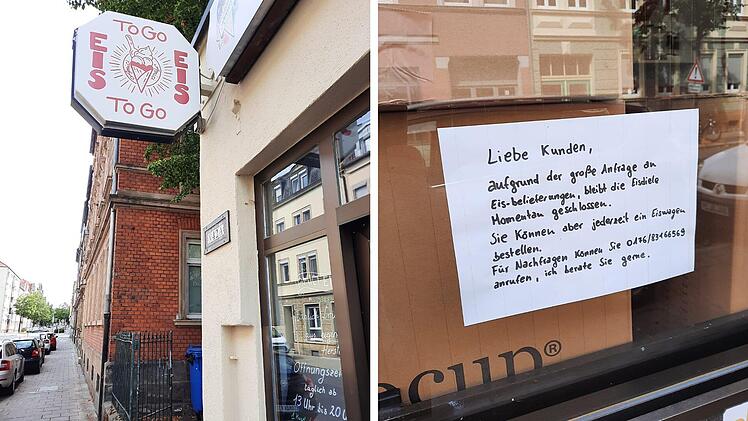 To Go
EIS
EIS
To Go
Öffnungszei
täglich ab
13 Uhr bis 20 U
Liebe Kunden,
aufgrund der große Anfrage an
Eis-belieferungen, bleibt die Eisdiele
Momentan geschlossen.
Sie Können aber jederzeit ein Eiswagen
bestellen.
Für Nachfragen Können Sie 0176/83166569
anrufen, ich berate Sie gerne.
ecup®